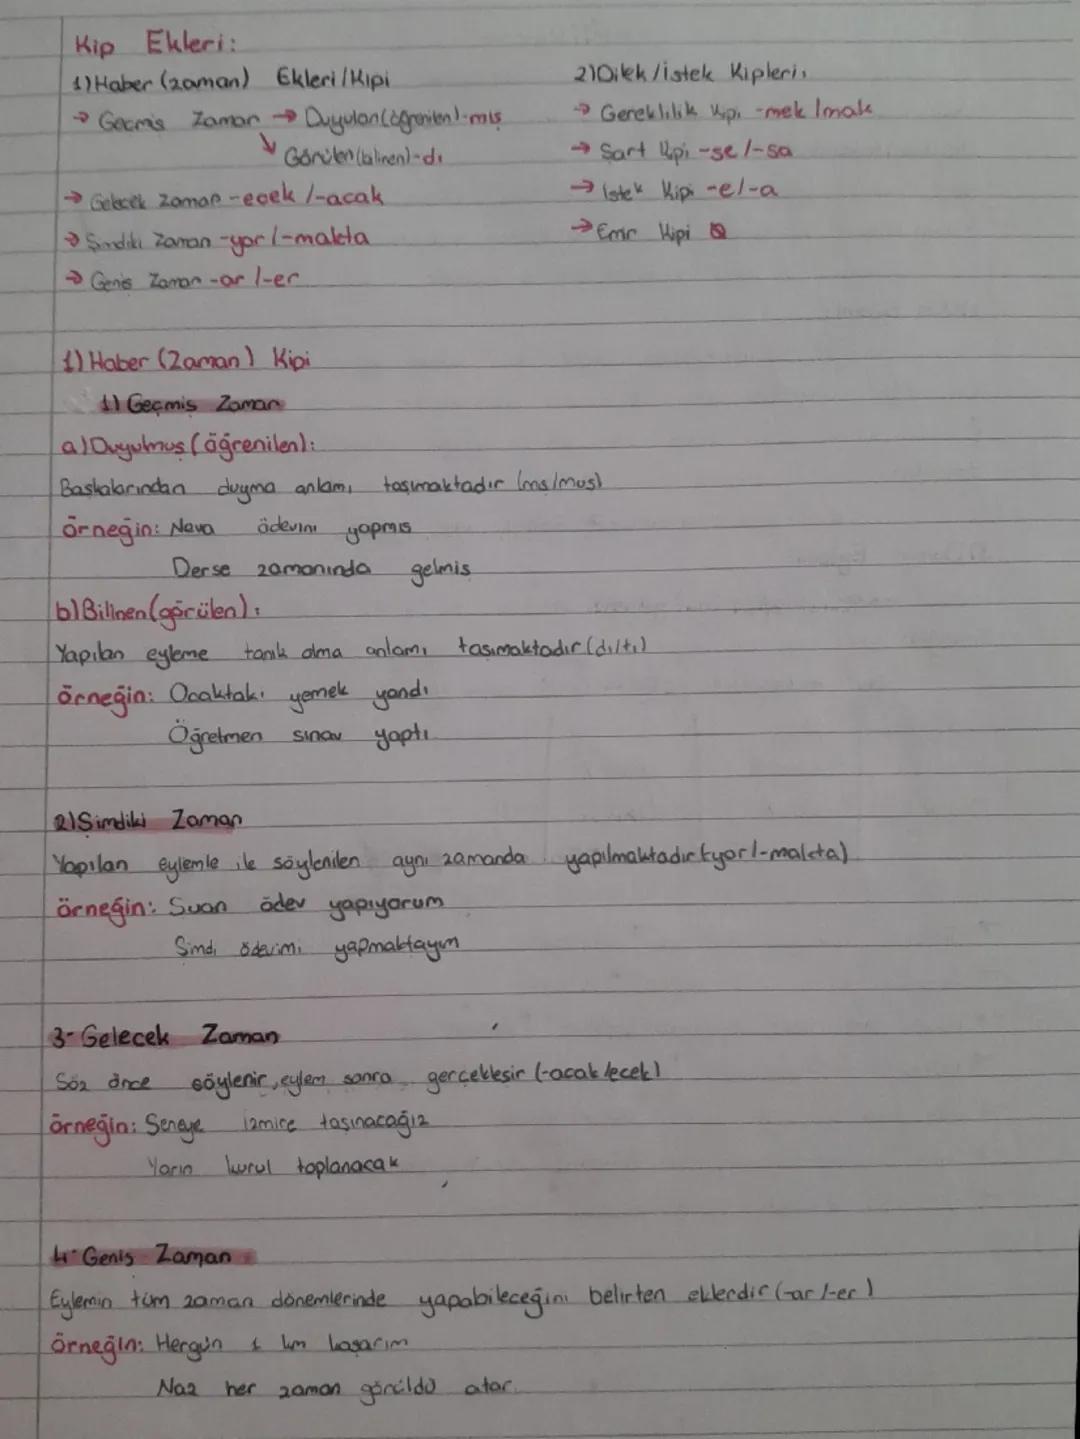 Kip Ekleri:
1) Haber (zaman) Ekleri/Kipi
→ Geçmiş Zaman → Duyulan (öğrenilen) -mış
↓ Görülen (bilinen) -dı
→ Gelecek Zaman -ecek /-acak
→ Şimdiki Zaman -yor /-makta
→ Geniş Zaman -ar /-er
2) Dilek/istek Kipleri:
→ Gereklilik Kipi -mek /mak
→ Şart Kipi -se /-sa
→ İstek Kipi -e/-a
→ Emir Kipi Ø
1) Haber (Zaman) Kipi
1) Geçmiş Zaman
a) Duyulmuş (öğrenilen):
Başkalarından duyma anlamı taşımaktadır (mış/muş)
örneğin: Neva ödevini yapmış
Derse zamanında gelmiş
b) Bilinen (görülen):
Yapılan eyleme tanık olma anlamı taşımaktadır (dı/tı)
örneğin: Ocaktakı yemek yandı
Öğretmen sınav yaptı
2) Şimdiki Zaman
Yapılan eylemle ile söylenilen aynı zamanda yapılmaktadır (-yor/-makta)
örneğin: Şuan ödev yapıyorum
Şimdi ödevimi yapmaktayım
3- Gelecek Zaman
Söz önce söylenir, eylem sonra gerçekleşir (-acak/ecek)
örneğin: Seneye izmire taşınacağız
Yarın kurul toplanacak
4- Geniş Zaman
Eylemin tüm zaman dönemlerinde yapabileceğini belirten eklerdir (-ar /-er)
örneğin: Hergün 1 km koşarım
Naz her zaman gürültü atar.